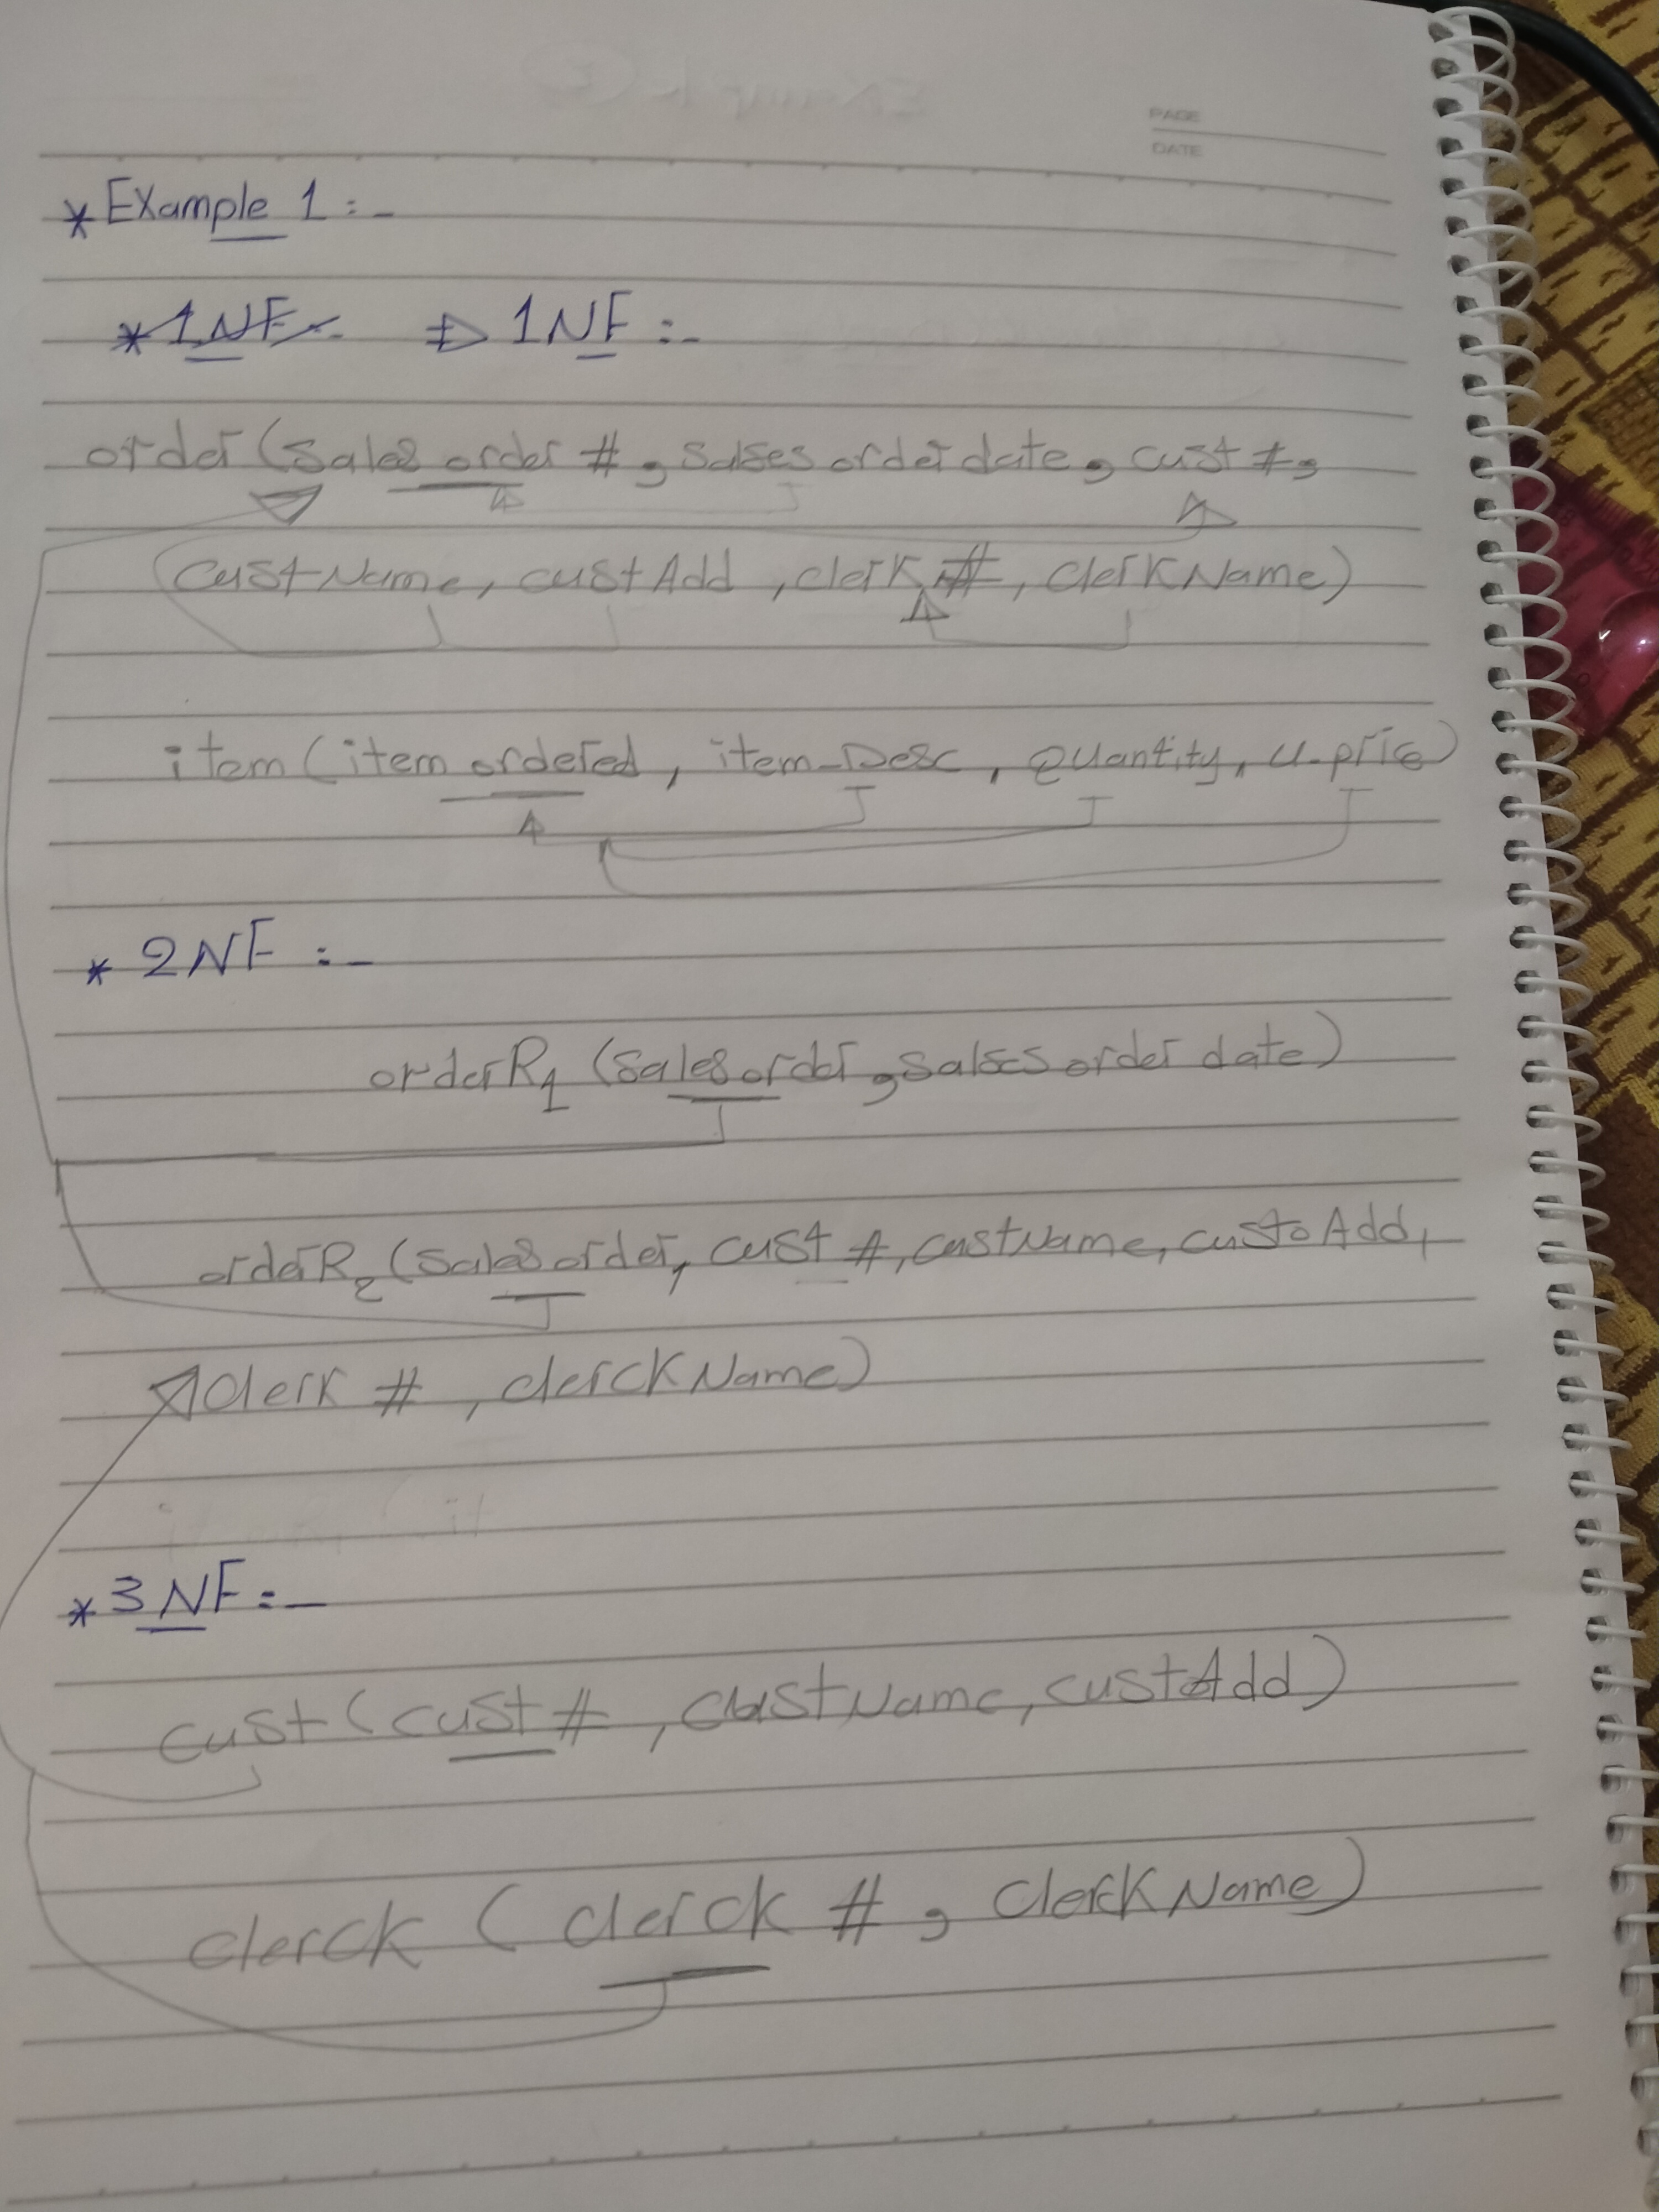 PAGE
DATE
* Example 1 :-
* 1NF :- ⇒ 1NF :-
order (sales order #, salses order date, cust #,
custName, custAdd, clerk #, clerkName)
item (item ordered, item-Desc, Quantity, u.price)
* 2NF :-
orderR1 (sales order, salses order date)
orderR2 (sales order, cust #, custName, custoAdd,
clerk #, clerckName)
* 3NF :-
cust (cust #, custName, custAdd)
clerck (clerck #, clerckName)